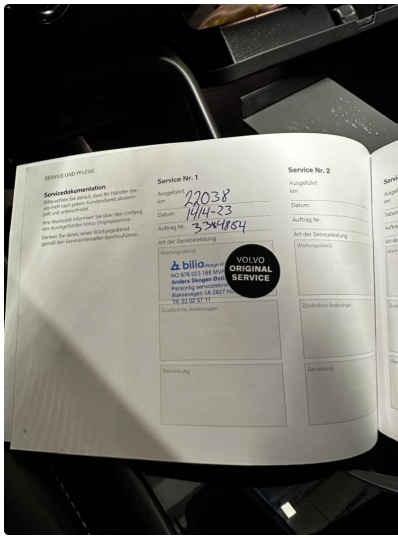 SERVICE UND PFLEGE
Servicedokumentation
Bitte achten Sie darauf, dass Ihr Händler die-
ses Heft nach jedem Kundendienst abstem-
pelt und unterschreibt.
Ihre Werkstatt informiert Sie über den Umfang
des durchgeführten Volvo Originalservice.
Denken Sie daran, einen Wartungsdienst
gemäß den Serviceintervallen durchzuführen.
Service Nr. 1
Ausgeführt
km
22038
Datum
14/4-23
Auftrag Nr.
Art der Serviceleistung
Wartungsdienst
bilia Norge
NO 976 023 188 MVA
Anders Skogen
Personlig servicetekni
Bakkavegen 1A 2827
Tlf. 03 02 57 11
VOLVO
ORIGINAL
SERVICE
Zusätzliche Änderungen
Bemerkung
Service Nr. 2
Ausgeführt
km
Datum
Auftrag Nr.
Art der Serviceleistung
Wartungsdienst
Zusätzliche Änderungen
Bemerkung